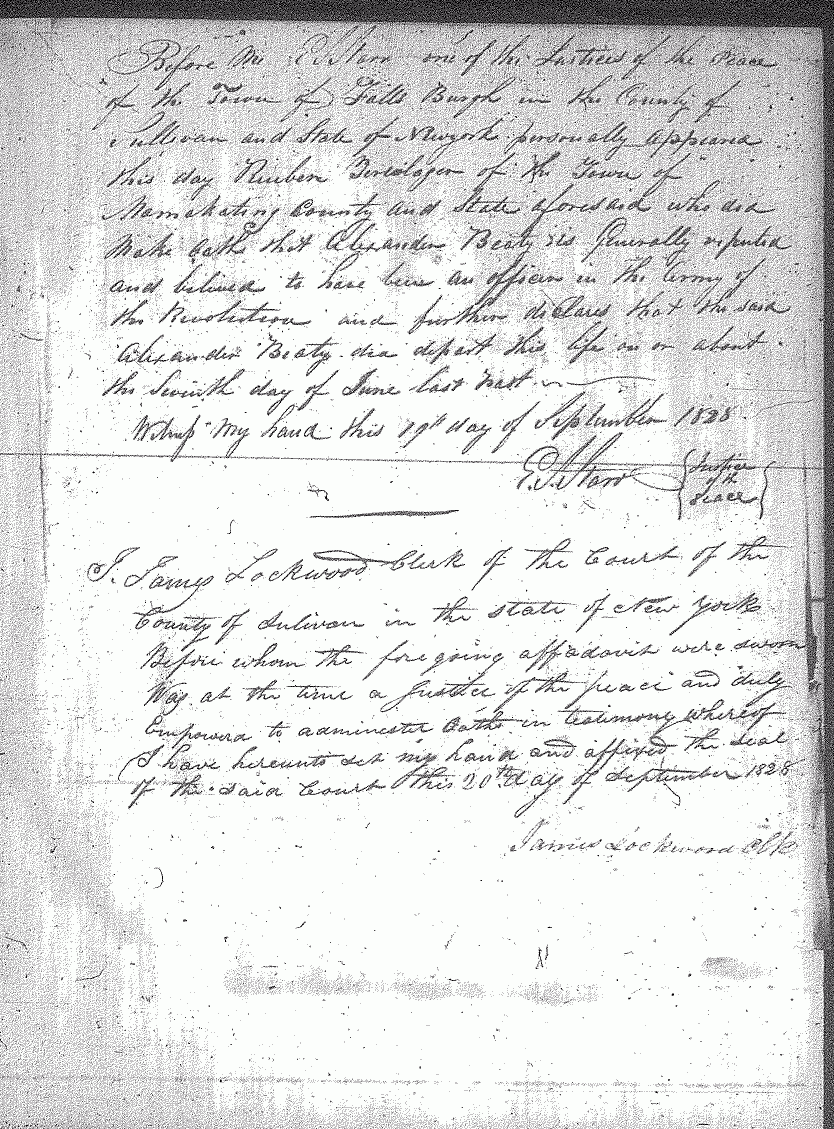 Before Me E. S. Starr one of the Justices of the Peace
of the Town of Falls Burgh in the County of
Sullivan and State of Newyork personally appeared
this day Reuben of the Town of
Mamakating County and State aforesaid who did
Make Oath that Alexander Beaty is Generally reputed
and belived to have been an officer in the Army of
the Revolution and further declares that the said
Alexander Beaty did depart this life on or about
the Seventh day of June last past
Witness My hand this 19th day of September 1828
E. S. Starr
Justice
of the
Peace
I. James Lockwood Clerk of the Court of the
County of Sulivan in the state of New York
Before whom the foregoing affadavit were sworn
Was at the time a Justice of the peace and duly
Empowerd to administer Oaths in testimony whereof
I have hereunto set my hand and affixed the seal
of the said Court this 20th day of September 1828
James Lockwood Clk